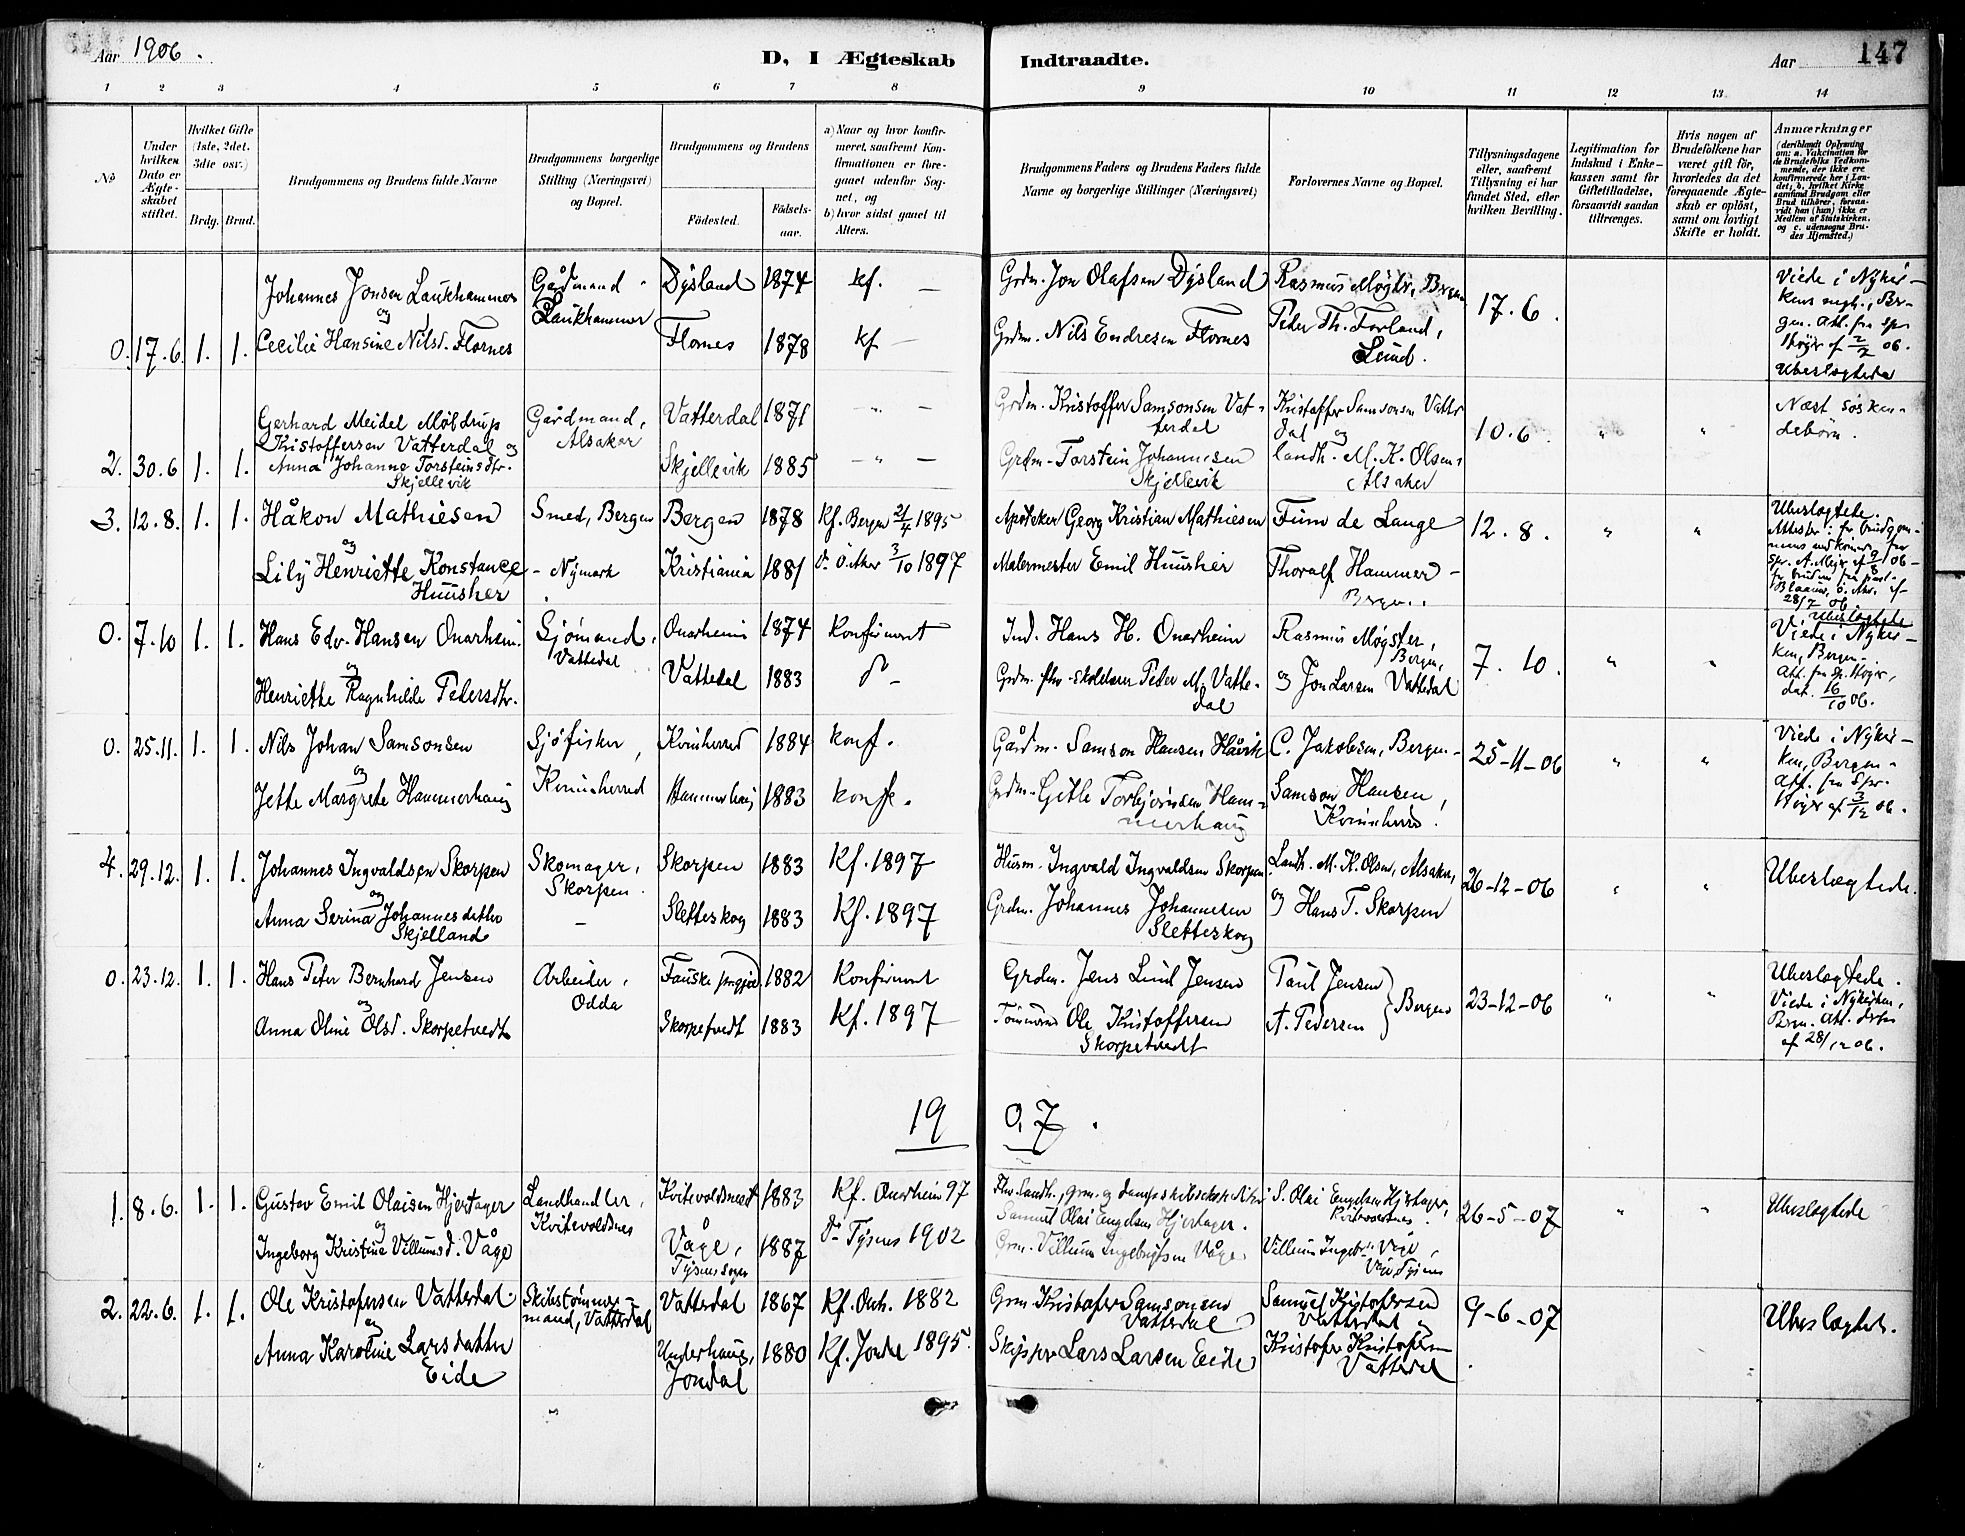 Aar 1906.
D, I Ægteskab Indtraadte.
Aar
147
1 2 3 4 5 6 7 8 9 10 11 12 13 14
No
Under hvilken Dato er Ægteskabet stiftet.
Hvilket Gifte (1ste, 2det, 3die osv.)
Brdg. Brud.
Brudgommens og Brudens fulde Navne
Brudgommens borgerlige Stilling (Næringsvei) og Bopæl.
Brudgommens og Brudens
Fødested. Fødselsaar.
a) Naar og hvor konfirmeret, saafremt Konfirmationen er foregaaet udenfor Sognet, og
b) hvor sidst gaaet til Alters.
Brudgommens Faders og Brudens Faders fulde Navne og borgerlige Stillinger (Næringsvei)
Forlovernes Navne og Bopæl.
Tillysningsdagene eller, saafremt Tillysning ei har fundet Sted, efter hvilken Bevilling.
Legitimation for Indskud i Enkekassen samt for Giftetilladelse, forsaavidt saadan tiltrænges.
Hvis nogen af Brudefolkene har været gift før, hvorledes da det foregaaende Ægteskab er opløst, samt om lovligt Skifte er holdt.
Anmærkninger (deriblandt Oplysning om: a. Vakcination for de Brudefolks Vedkommende, der ikke ere konfirmerede her i Landet; b. hvilket Kirkesamfund Brudgom eller Brud tilhører, forsaavidt han (hun) ikke er Medlem af Statskirken, og c. udensogns Brudes Hjemsted.)
0. 17.6 1. 1.
Johannes Jonsen Laukhammer
og
Cecilie Hansine Nilsd. Flornes
Gårdmand
Laukhammer
Dysland 1874 kf. —
Flornes 1878 kf —
Grdm. Jon Olafsen Dysland
Grdm. Nils Endresen Flornes
Rasmus Møgster, Bergen
Peter Th. Forland,
Lund.
17.6.
Viede i Nykirken
Ubeslægtede
2. 30.6 1. 1.
Gerhard Meidel Møldrup
Kristoffersen Vatterdal og
Anna Johanne Torsteinsdtr.
Skjellevik
Gårdmand,
Alsaker
Vatterdal 1871 - " -
Skjellevik 1885 - " -
Grdm. Kristoffer Samsonsen Vatterdal
Grdm. Torstein Johannesen
Skjellevik
Kristoffer Samsonsen Vatterdal
og
landh. M. K. Olsen,
Alsaker
10.6. " "
Næst søskendebørn.
3. 12.8. 1. 1.
Håkon Mathiesen
og
Lily Henriette Konstance
Huusher
Smed, Bergen
- Nymark
Bergen 1878 Kf. Bergen 21/4 1895
Kristiania 1881 do Ø. Aker 3/10 1897
Apoteker Georg Kristian Mathiesen
Malermester Emil Huusher
Finn de Lange
Thoralf Hammer -
Bergen.
12.8. " "
Ubeslægtede.
28/7 06
0. 7.10 1. 1.
Hans Edv. Hansen Onarheim.
og
Henriette Ragnhilde Petersdtr.
Sjømand,
Vattedal
Onarheim 1874 Konfirmert
Vattedal 1883 do -
Ind. Hans H. Onarheim
Grdm. fhv. skolelærer Peter M. Vattedal
Rasmus Møgster,
Bergen,
og Jon Larsen Vattedal
7.10. " "
Ubeslægtede
Viede i Nykirken, Bergen.
Att. fra Sp. Høyer,
dat. 16/10 06.
0. 25.11. 1. 1.
Nils Johan Samsonsen
og
Jette Margrete Hammerhaug
Sjøfisker,
Kvinherred
Kvinherred 1884 konf.
Hammerhaug 1883 konf.
Gårdm. Samson Hansen Håvik
Grdm. Gitle Torbjørnsen Hammerhaug
C. Jakobsen, Bergen -
Samson Hansen,
Kvinherred.
25-11-06 " "
Viede i Nykirken, Bergen -
Att. fra Spr.
Høyer af 3/12 06.
4. 29.12. 1. 1.
Johannes Ingvaldsen Skorpen
og
Anna Serina Johannesdatter
Skjelland
Skomager,
Skorpen.
-
Skorpen 1883 Kf. 1897
Sletteskog 1883 Kf. 1897
Husm. Ingvald Ingvaldsen Skorpen
Grdm. Johannes Johannesen
Sletteskog
Landh. M. K. Olsen, Alsaker,
og Hans T. Skorpen
26-12-06 " "
Ubeslægtede.
0. 23.12. 1. 1.
Hans Peter Bernhard Jensen
og
Anna Oline Olsd. Skorpetvedt
Arbeider,
Odda
Fauske prgjæld 1882 Konfirmert
Skorpetvedt 1883 Kf. 1897
Grdm. Jens Lind Jensen
Tømmerm. Ole Kristoffersen
Skorpetvedt
Paul Jensen
A. Pedersen } Bergen
23-12-06 " "
Ubeslægtede.
Viede i Nykirken,
af 28/12 06.
19 0.7.
1. 8.6. 1. 1.
Gustav Emil Olaisen Hjertager
og
Ingeborg Kristine Villumsd. Våge
Landhandler,
Kvitevoldsnes
Kvitevoldsnes 1883 Kf. Onarheim 97
Våge, Tysnes sogn 1887 do Tysnes 1902
Samuel Olai Engelsen Hjertager.
Grm. Villum Ingebrigtsen Våge.
S. Olai Engelsen Hjertager,
Villum Ingebr. Våge,
Våge, Tysnes
26-5-07 " "
Ubeslægtede
2. 22.6. 1. 1.
Ole Kristofersen Vatterdal
og
Anna Karoline Larsdatter
Eide
Skibstømmermand, Vatterdal
Vatterdal 1867 Kf. Onh. 1882
Underhaug, Jondal 1880 Kf. Jondal 1895.
Grm. Kristofer Samsonsen
Vatterdal
Skipper Lars Larsen Eide
Samuel Kristofersen
Vatterdal og
Kristofer Kristofersen
Vatterdal
9-6-07
Ubeslægtet.